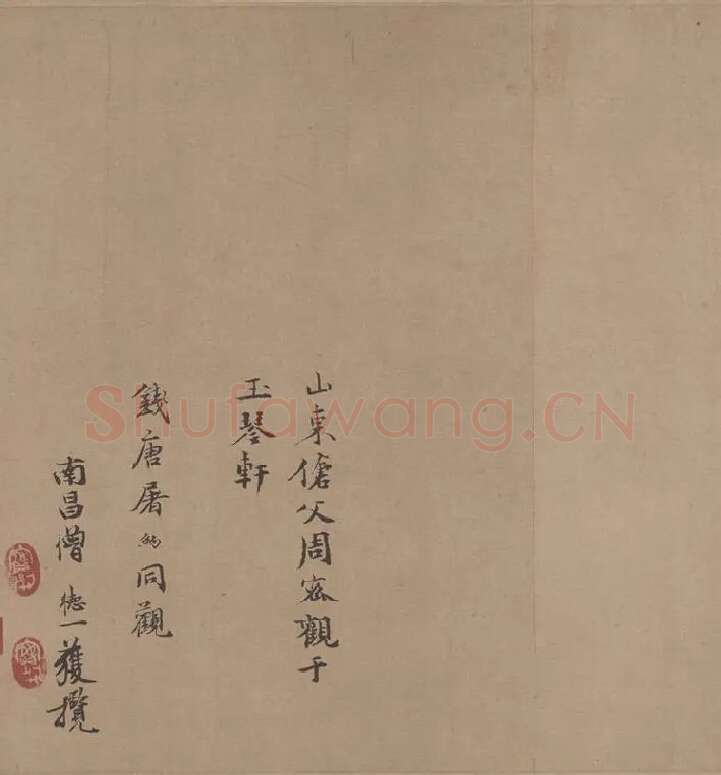 山東傖父周密觀于
玉琴軒
錢唐屠 同觀
南昌僧德一獲攬
Shufawang.CN